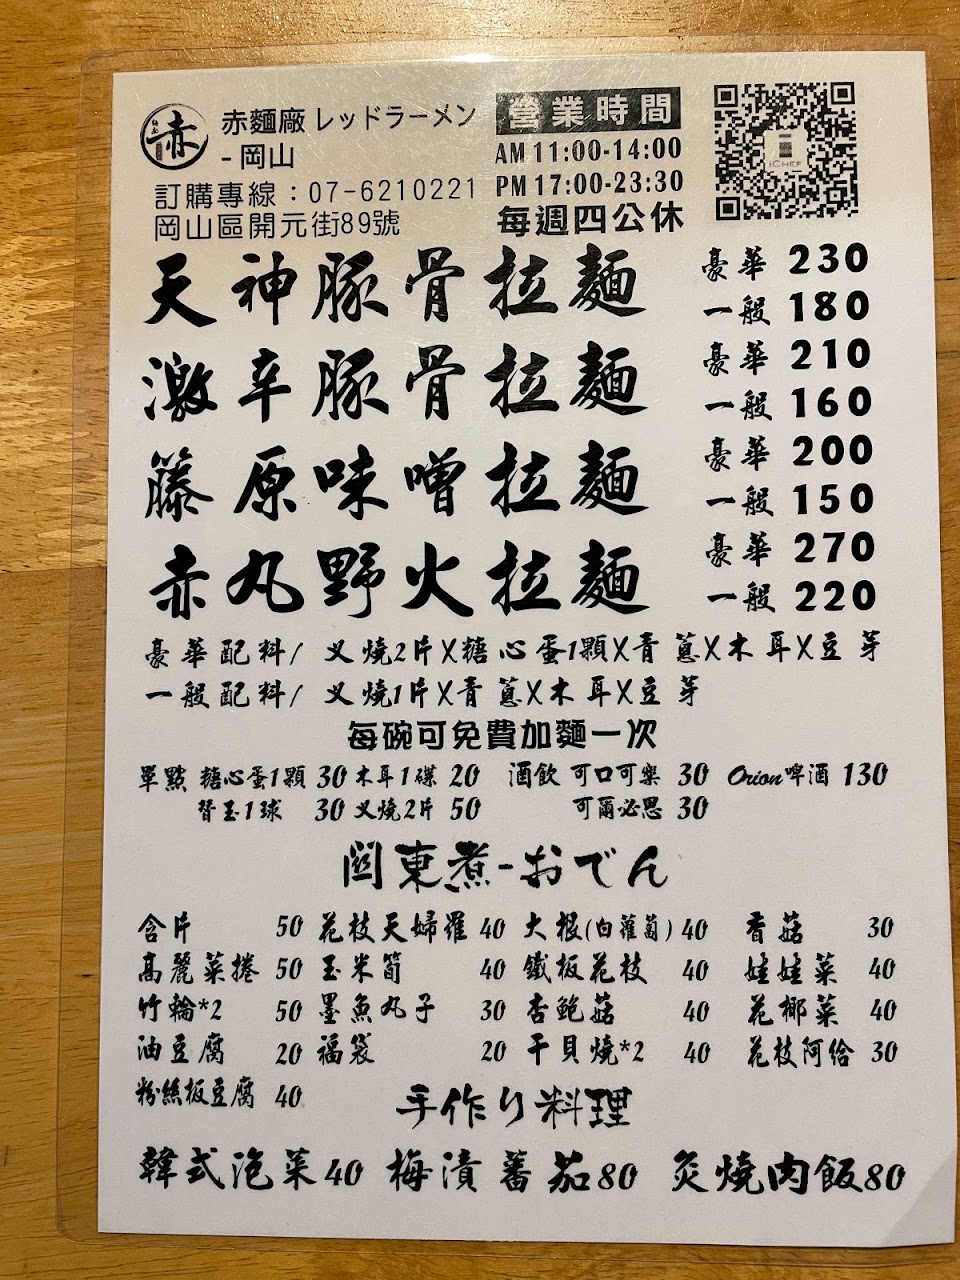 赤
赤麵廠 レッドラーメン
-岡山
訂購專線：07-6210221
岡山區開元街89號
營業時間
AM 11:00-14:00
PM 17:00-23:30
每週四公休
iCHEF
天神豚骨拉麵 豪華 230
一般 180
激辛豚骨拉麵 豪華 210
一般 160
籐原味噌拉麵 豪華 200
一般 150
赤丸野火拉麵 豪華 270
一般 220
豪華配料/ 叉燒2片X糖心蛋1顆X青蔥X木耳X豆芽
一般配料/ 叉燒1片X青蔥X木耳X豆芽
每碗可免費加麵一次
單點 糖心蛋1顆 30 木耳1碟 20 酒飲 可口可樂 30 Orion啤酒 130
替玉1球 30 叉燒2片 50 可爾必思 30
関東煮-おでん
含片 50 花枝天婦羅 40 大根(白蘿蔔) 40 香菇 30
高麗菜捲 50 玉米筍 40 鐵板花枝 40 娃娃菜 40
竹輪*2 50 墨魚丸子 30 杏鮑菇 40 花椰菜 40
油豆腐 20 福袋 20 干貝燒*2 40 花枝阿給 30
粉絲板豆腐 40
手作り料理
韓式泡菜40 梅漬蕃茄80 炙燒肉飯80